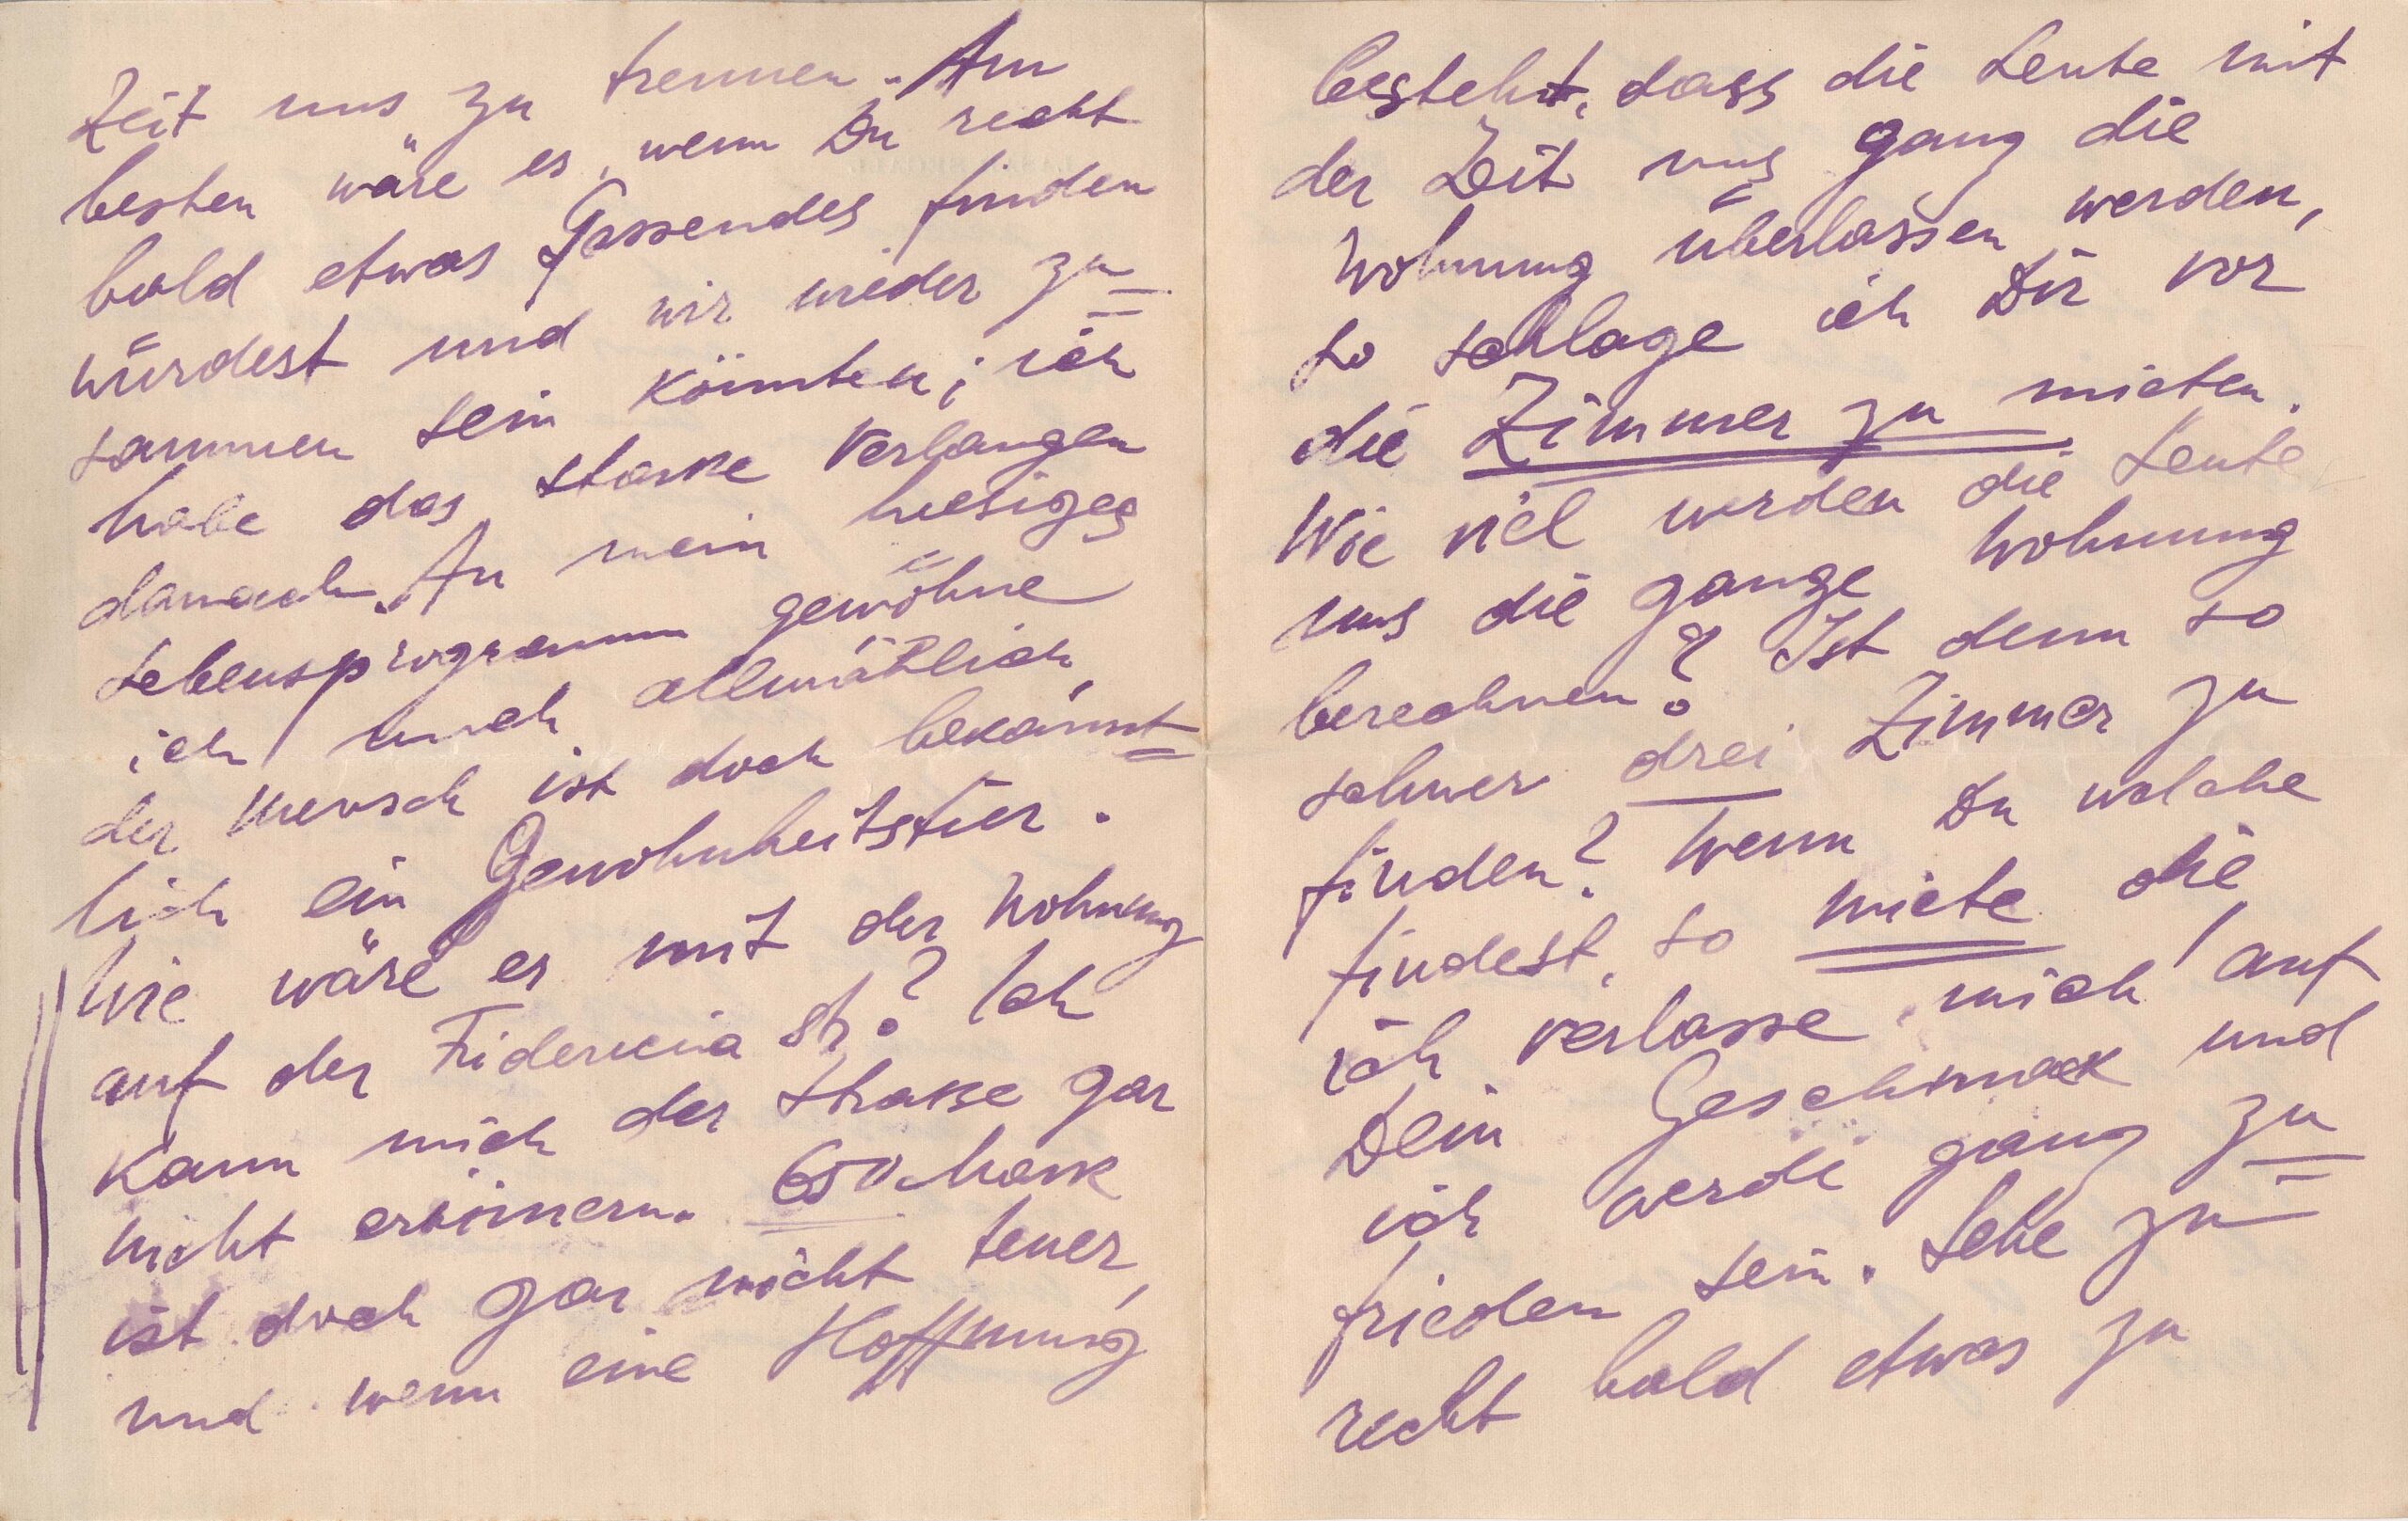 Zeit uns zu trennen. Am
besten wäre es, wenn Du recht
bald etwas Passendes finden
würdest und wir wieder zu=
sammen sein könnten; ich
habe das starke Verlangen
danach. An mein hiesiges
Lebensprogramm gewöhne
ich mich allmählich,
der Mensch ist doch bekannt=
lich ein Gewohnheitstier.
Wie wäre es mit der Wohnung
auf der str? Ich
kann mich der Strasse gar
nicht erinnern. 650 Mark
ist doch gar nicht teuer,
und wenn eine Hoffnung
besteht, dass die Leute mit
der Zeit uns ganz die
Wohnung überlassen werden,
so schlage ich Dir vor
die Zimmer zu mieten.
Wie viel werden die Leute
uns die ganze Wohnung
berechnen? Ist denn so
schwer drei Zimmer zu
finden? Wenn Du welche
findest, so miete die,
ich verlasse mich auf
Dein Geschmack und
ich werde ganz zu=
frieden sein. Sehe zu
recht bald etwas zu